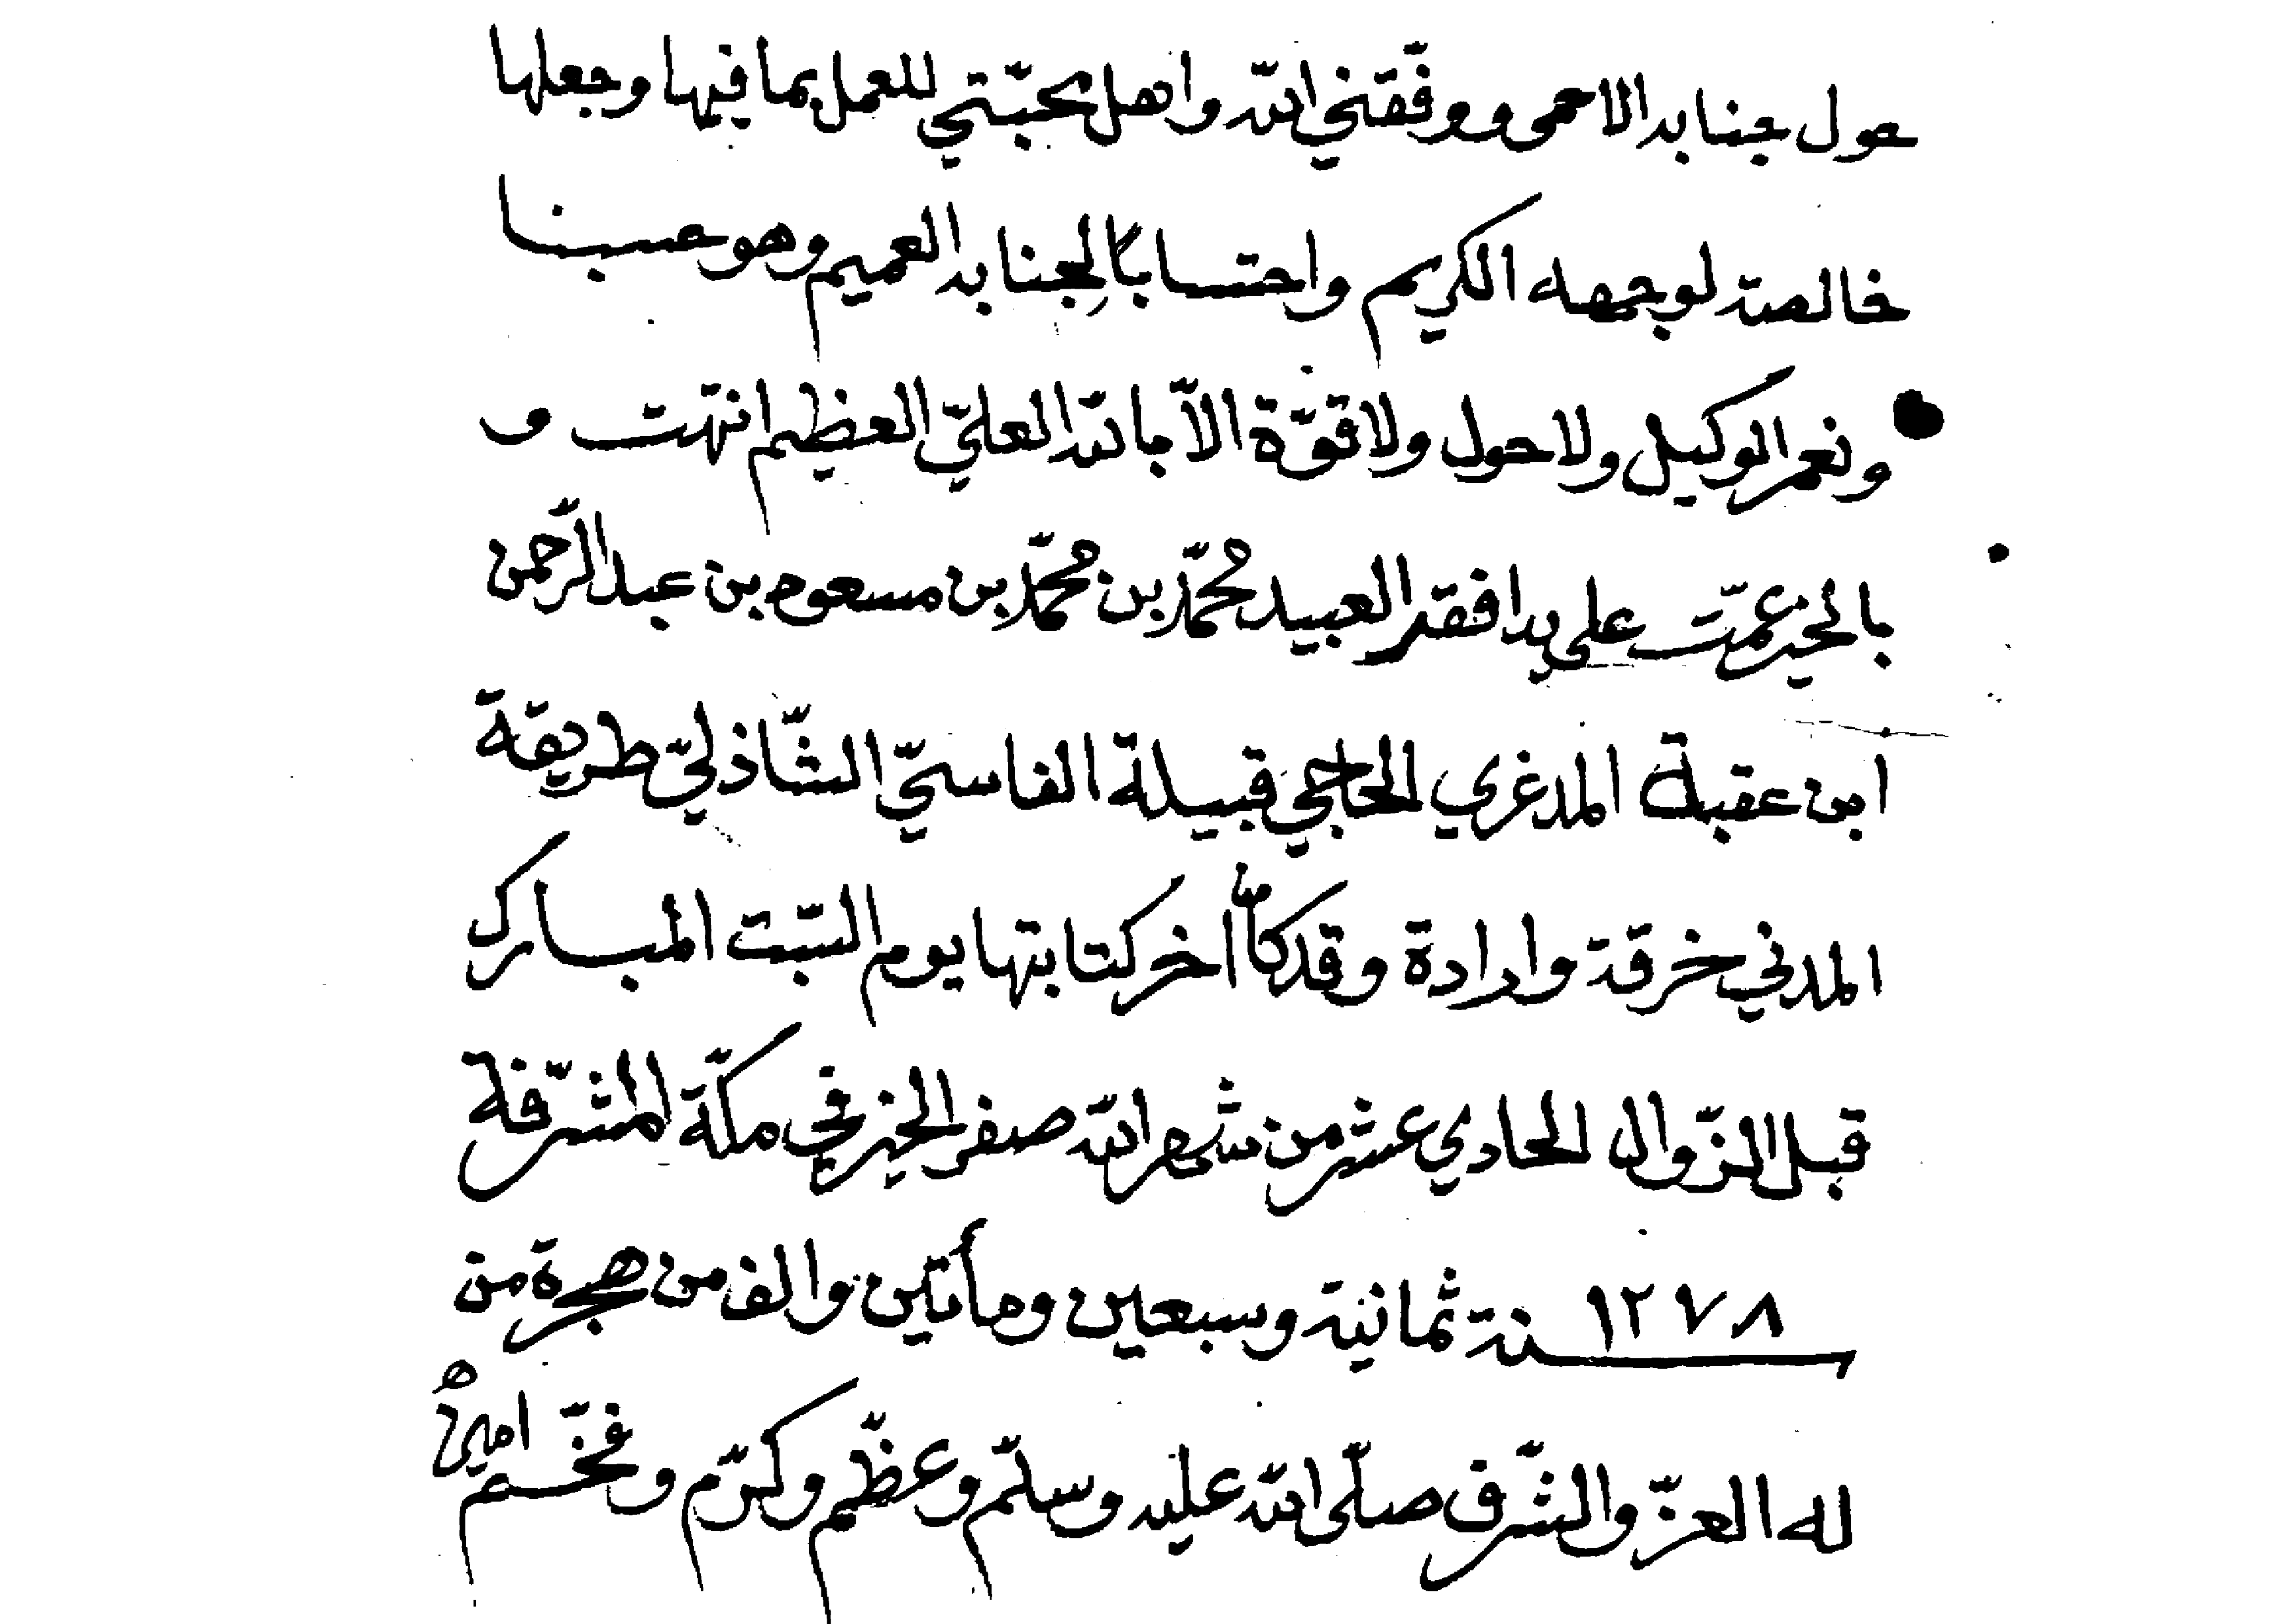 حول جنابه الاحمى ووفقني الله واهل محبّتي للعمل بما فيها وجعلها
خالصة لوجهه الكريم واحتسابًا لجنابه العميم وهو حسبنا
ونعم الوكيل ولا حول ولا قوّة الاّ بالله العليّ العظيم انتهت و
بالخير عمّت على يد افقر العبيد محمّد بن محمّد بن مسعود بن عبد الرّحمن
ابن عقبة المدغري الحاجي قبيلة الفاسيّ الشّاذليّ طريقة
المدني خرقة وارادة وقد كان اخر كتابتها يوم السّبت المبارك
قبل الزّوال الحادي عشر من شهر الله صفر الخير في مكّة المشرّفة
١٢٧٨ سنة ثمانية وسبعين ومأتين والف من هجرة من
له العزّ والشّرف صلّى الله عليه وسلّم وعظّم وكرّم وفخّم امين